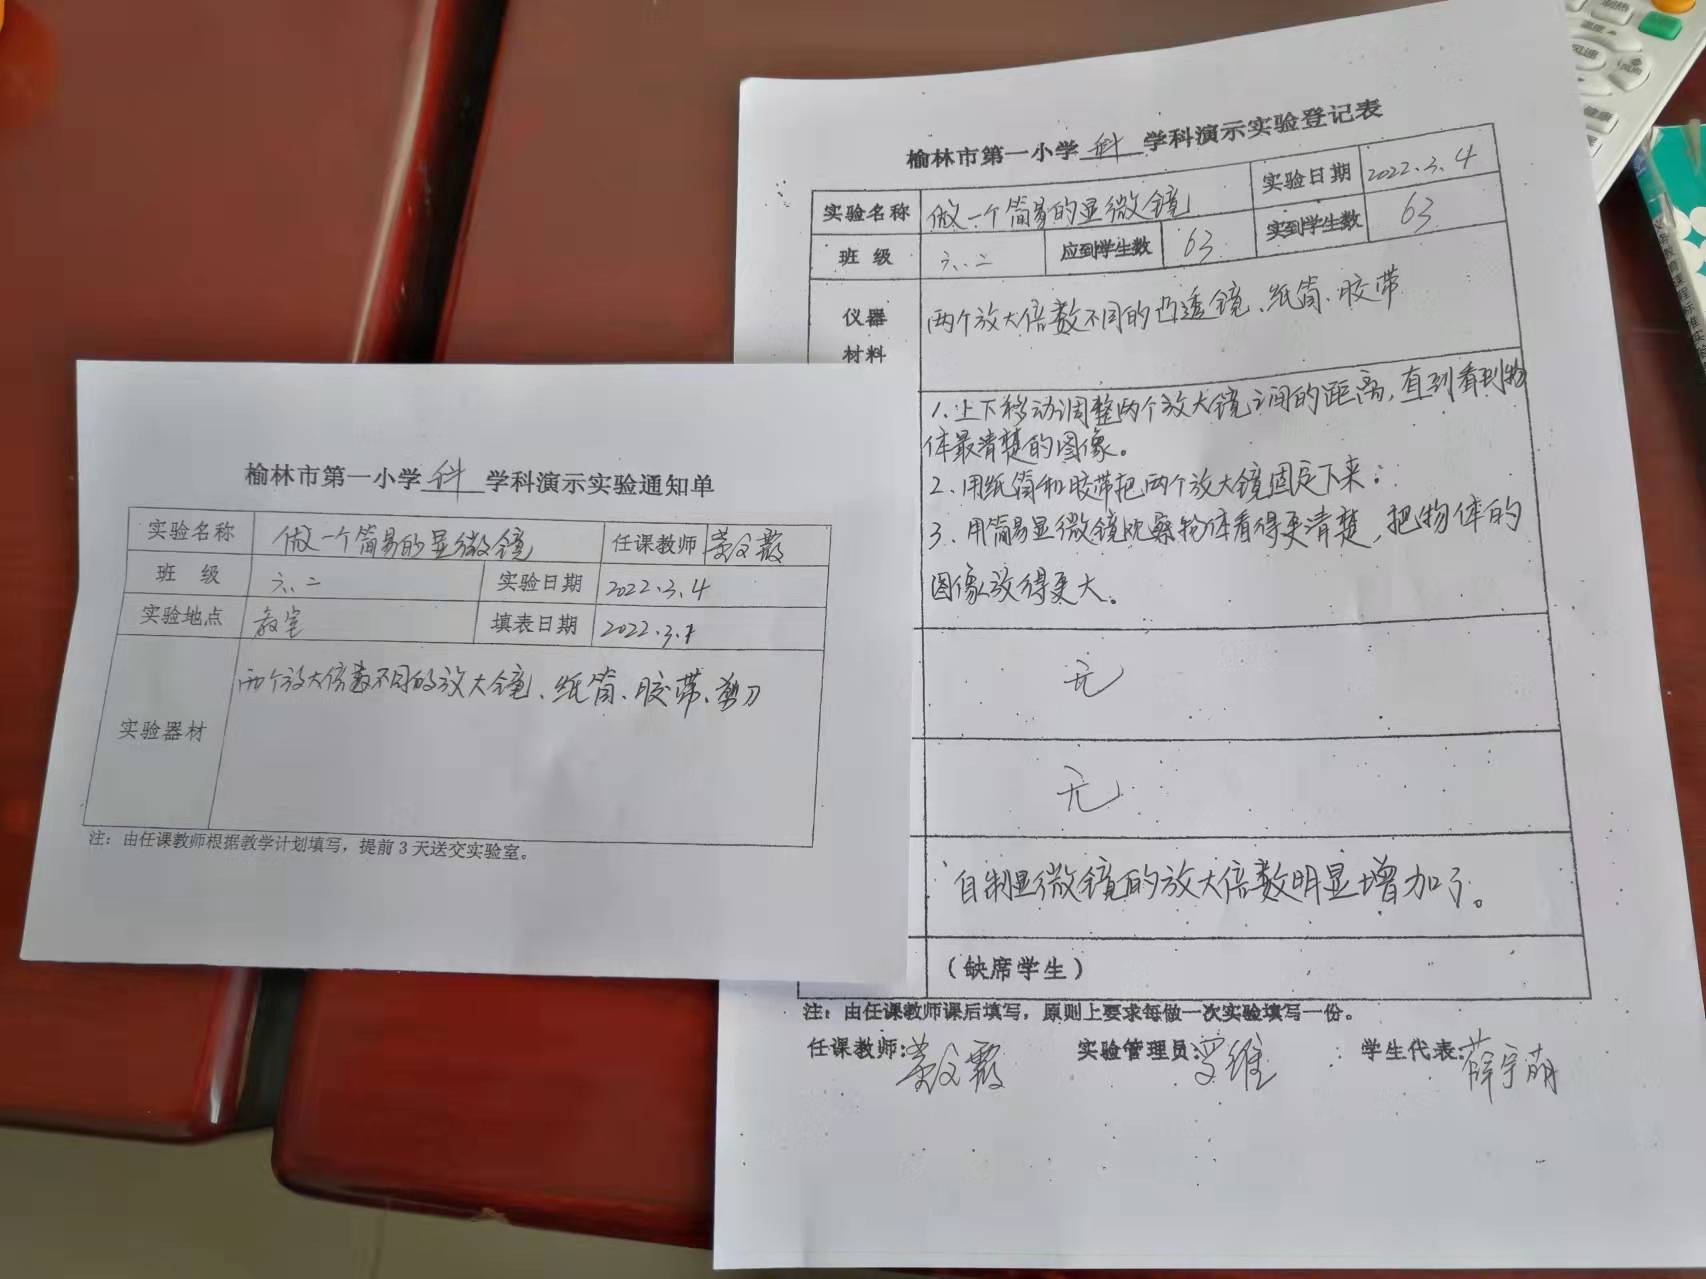 榆林市第一小学 科 学科演示实验通知单
实验名称 做一个简易的显微镜 任课教师
班 级 六.二 实验日期 2022.3.4
实验地点 教室 填表日期 2022.3.1
实验器材 两个放大倍数不同的放大镜、纸筒、胶带、剪刀
注：由任课教师根据教学计划填写，提前3天送交实验室。
榆林市第一小学 科 学科演示实验登记表
实验名称 做一个简易的显微镜 实验日期 2022.3.4
班 级 六.二 应到学生数 63 实到学生数 63
仪器
材料
两个放大倍数不同的凸透镜、纸筒、胶带
1.上下移动调整两个放大镜之间的距离,直到看到物
体最清楚的图像。
2.用纸筒和胶带把两个放大镜固定下来；
3.用简易显微镜观察物体看得更清楚,把物体的
图像放得更大。
无
无
自制显微镜的放大倍数明显增加了。
(缺席学生)
注：由任课教师课后填写，原则上要求每做一次实验填写一份。
任课教师: 实验管理员:罗维 学生代表:薛宇萌